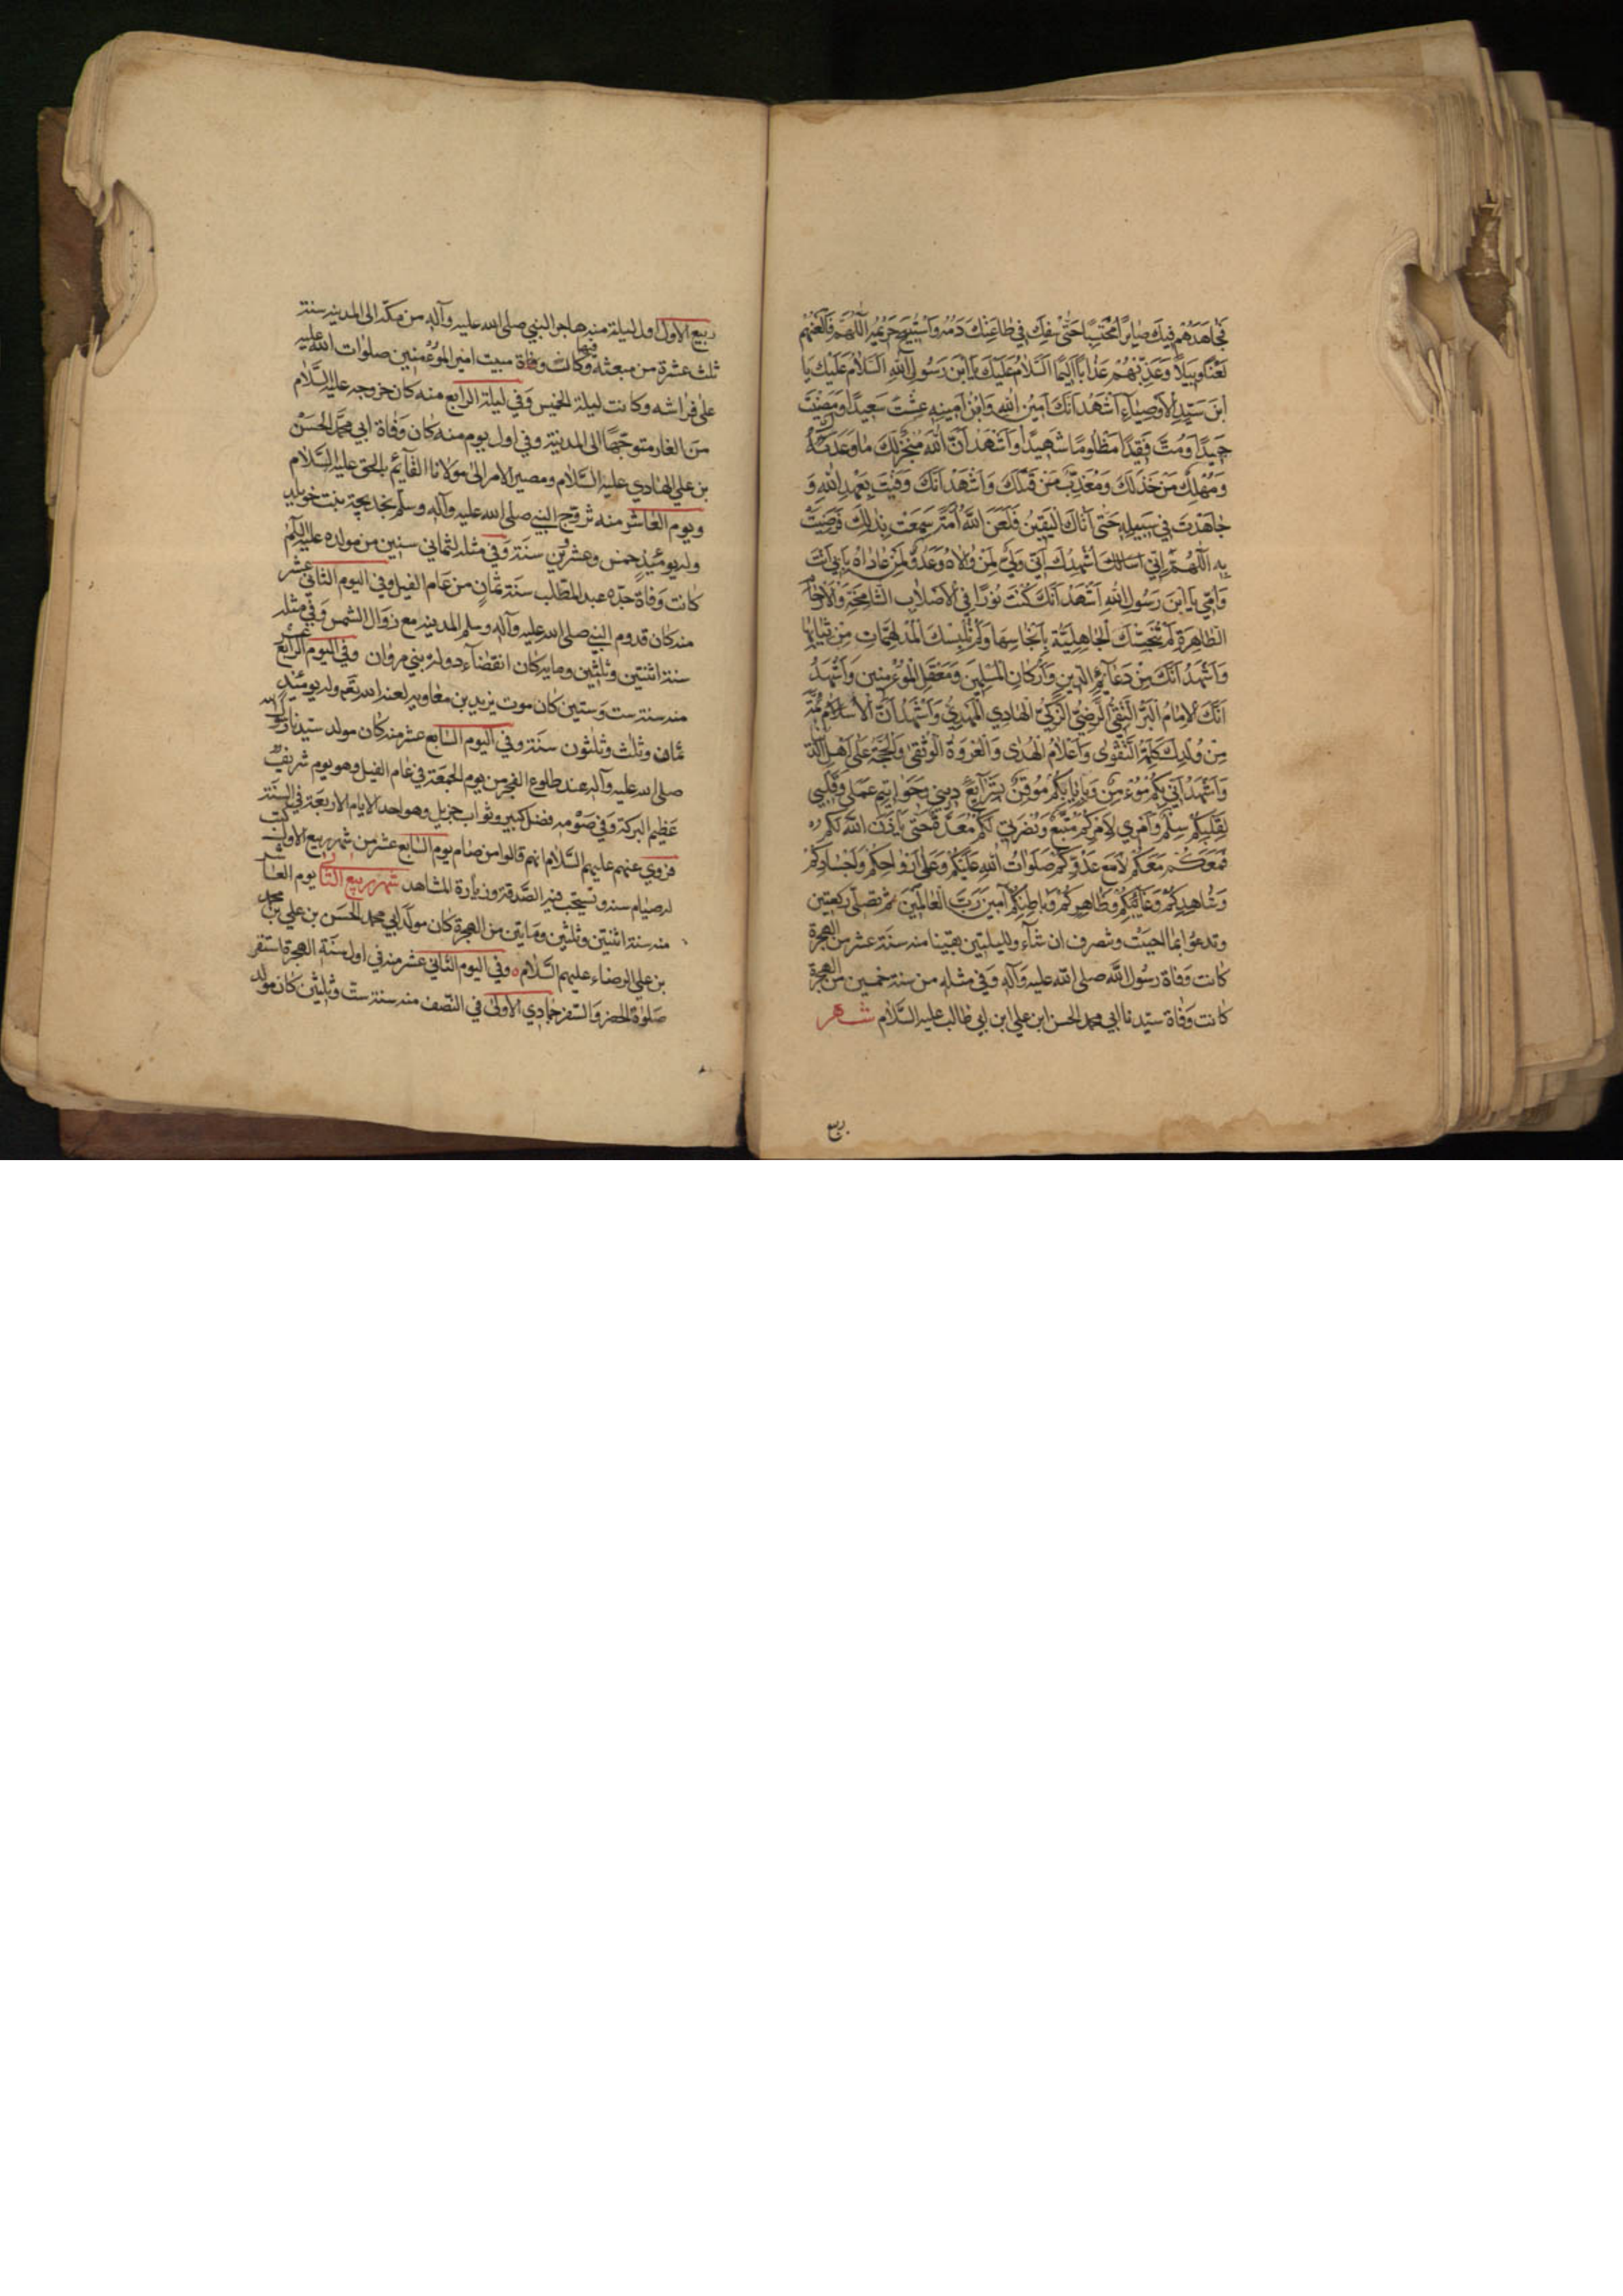 فَجاهَدَهُمْ فيكَ صابِرًا مُحْتَسِبًا حَتّى سُفِكَ في طاعَتِكَ دَمُهُ وَاسْتُبيحَ حَريمُهُ اَللّهُمَّ فَالْعَنْهُمْ
لَعْنًا وَبيلاً وَعَذِّبْهُمْ عَذابًا اَليمًا اَلسَّلامُ عَلَيْكَ يَا ابْنَ رَسُولِ اللهِ اَلسَّلامُ عَلَيْكَ يَا
ابْنَ سَيِّدِ الْاَوْصِياءِ اَشْهَدُ اَنَّكَ اَمينُ اللهِ وَابْنُ اَمينِهِ عِشْتَ سَعيدًا وَمَضَيْتَ
حَميدًا وَمُتَّ فَقيدًا مَظْلُومًا شَهيدًا وَاَشْهَدُ اَنَّ اللهَ مُنْجِزٌ لَكَ ما وَعَدَكَ
وَمُهْلِكٌ مَنْ خَذَلَكَ وَمُعَذِّبٌ مَنْ قَتَلَكَ وَاَشْهَدُ اَنَّكَ وَفَيْتَ بِعَهْدِ اللهِ وَ
جاهَدْتَ في سَبيلِهِ حَتّى اَتاكَ الْيَقينُ فَلَعَنَ اللهُ اُمَّةً سَمِعَتْ بِذلِكَ فَرَضِيَتْ
بِهِ اَللّهُمَّ اِنّي اُشْهِدُكَ اَنّي وَلِيٌّ لِمَنْ والاهُ وَعَدُوٌّ لِمَنْ عاداهُ بِاَبي اَنْتَ
وَاُمّي يَا ابْنَ رَسُولِ اللهِ اَشْهَدُ اَنَّكَ كُنْتَ نُورًا فِي الْاَصْلابِ الشّامِخَةِ وَالْاَرْحامِ
الطّاهِرَةِ لَمْ تُنَجِّسْكَ الْجاهِلِيَّةُ بِاَنْجاسِها وَلَمْ تُلْبِسْكَ الْمُدْلَهِمّاتِ مِنْ ثِيابِها
وَاَشْهَدُ اَنَّكَ مِنْ دَعائِمِ الدّينِ وَاَرْكانِ الْمُسْلِمينَ وَمَعْقِلِ الْمُؤْمِنينَ وَاَشْهَدُ
اَنَّكَ الْاِمامُ الْبَرُّ التَّقِيُّ الرَّضِيُّ الزَّكِيُّ الْهادِي الْمَهْدِيُّ وَاَشْهَدُ اَنَّ
مِنْ وُلْدِكَ كَلِمَةُ التَّقْوى وَاَعْلامُ الْهُدى وَالْعُرْوَةُ الْوُثْقى وَالْحُجَّةُ عَلى اَهْلِ الدُّنْيا
وَاَشْهَدُ اَنّي بِكُمْ مُؤْمِنٌ وَبِاِيابِكُمْ مُوقِنٌ بِشَرايِعِ ديني وَخَواتيمِ عَمَلي وَقَلْبي
لِقَلْبِكُمْ سِلْمٌ وَاَمْري لِاَمْرِكُمْ مُتَّبِعٌ وَنُصْرَتي لَكُمْ مُعَدَّةٌ حَتّى يَأْذَنَ اللهُ لَكُمْ
فَمَعَكُمْ مَعَكُمْ لا مَعَ عَدُوِّكُمْ صَلَواتُ اللهِ عَلَيْكُمْ وَعَلى اَرْواحِكُمْ وَاَجْسادِكُمْ
وَشاهِدِكُمْ وَغائِبِكُمْ وَظاهِرِكُمْ وَباطِنِكُمْ آمينَ رَبَّ الْعالَمينَ ثم تصلي ركعتين
وتدعو بما احببت وتنصرف ان شاء ولليلتين بقيتا منه سنة عشر من الهجرة
كانت وفاة رسول الله صلى الله عليه وآله وفي مثله من سنة خمسين من الهجرة
كانت وفاة سيدنا ابي محمد الحسن ابن علي ابن ابي طالب عليه السلام شهر
ربيع
ربيع الاول اول ليلة منه هاجر النبي صلى الله عليه وآله من مكة الى المدينة سنة
ثلث عشرة من مبعثه وكانت فيها مبيت امير المؤمنين صلوات الله عليه
على فراشه وكانت ليلة الخميس وفي ليلة الرابع منه كان خروجه عليه السلام
من الغار متوجها الى المدينة وفي اول يوم منه كان وفاة ابي محمد الحسن
بن علي الهادي عليه السلام ومصير الامر الى مولانا القائم بالحق عليه السلام
ويوم العاشر منه تزوج النبي صلى الله عليه وآله وسلم بخديجة بنت خويلد
وله يومئذ خمس وعشرين سنة وفي مثله لثماني سنين من مولده عليه السلام
كانت وفاة جده عبد المطلب سنة ثمان من عام الفيل وفي اليوم الثاني عشر
منه كان قدوم النبي صلى الله عليه وآله وسلم المدينة مع زوال الشمس وفي مثله
سنة اثنتين وثلثين وماية كان انقضاء دولة بني مروان وفي اليوم الرابع عشر
منه سنة ست وستين كان موت يزيد بن معاوية لعنه الله تعم وله يومئذ
ثمان وثلث وثلثون سنة وفي اليوم السابع عشر منه كان مولد سيدنا رسول الله
صلى الله عليه وآله عند طلوع الفجر من يوم الجمعة في عام الفيل وهو يوم شريف
عظيم البركة وفي صومه فضل كبير وثواب جزيل وهو احد الايام الاربعة في السنة
فروي عنهم عليهم السلام انهم قالوا من صام يوم السابع عشر من شهر ربيع الاول كتب
له صيام سنة ويستحب فيه الصدقة وزيارة المشاهد شهر ربيع الثاني يوم العاشر
منه سنة اثنتين وثلثين وماتين من الهجرة كان مولد ابي محمد الحسن بن علي بن محمد
بن علي الرضاء عليهم السلام ٥ وفي اليوم الثاني عشر منه في اول سنة الهجرة استقر
صلوة الحضر والسفر جمادي الاولى في النصف منه سنة ست وثلثين كان مولد